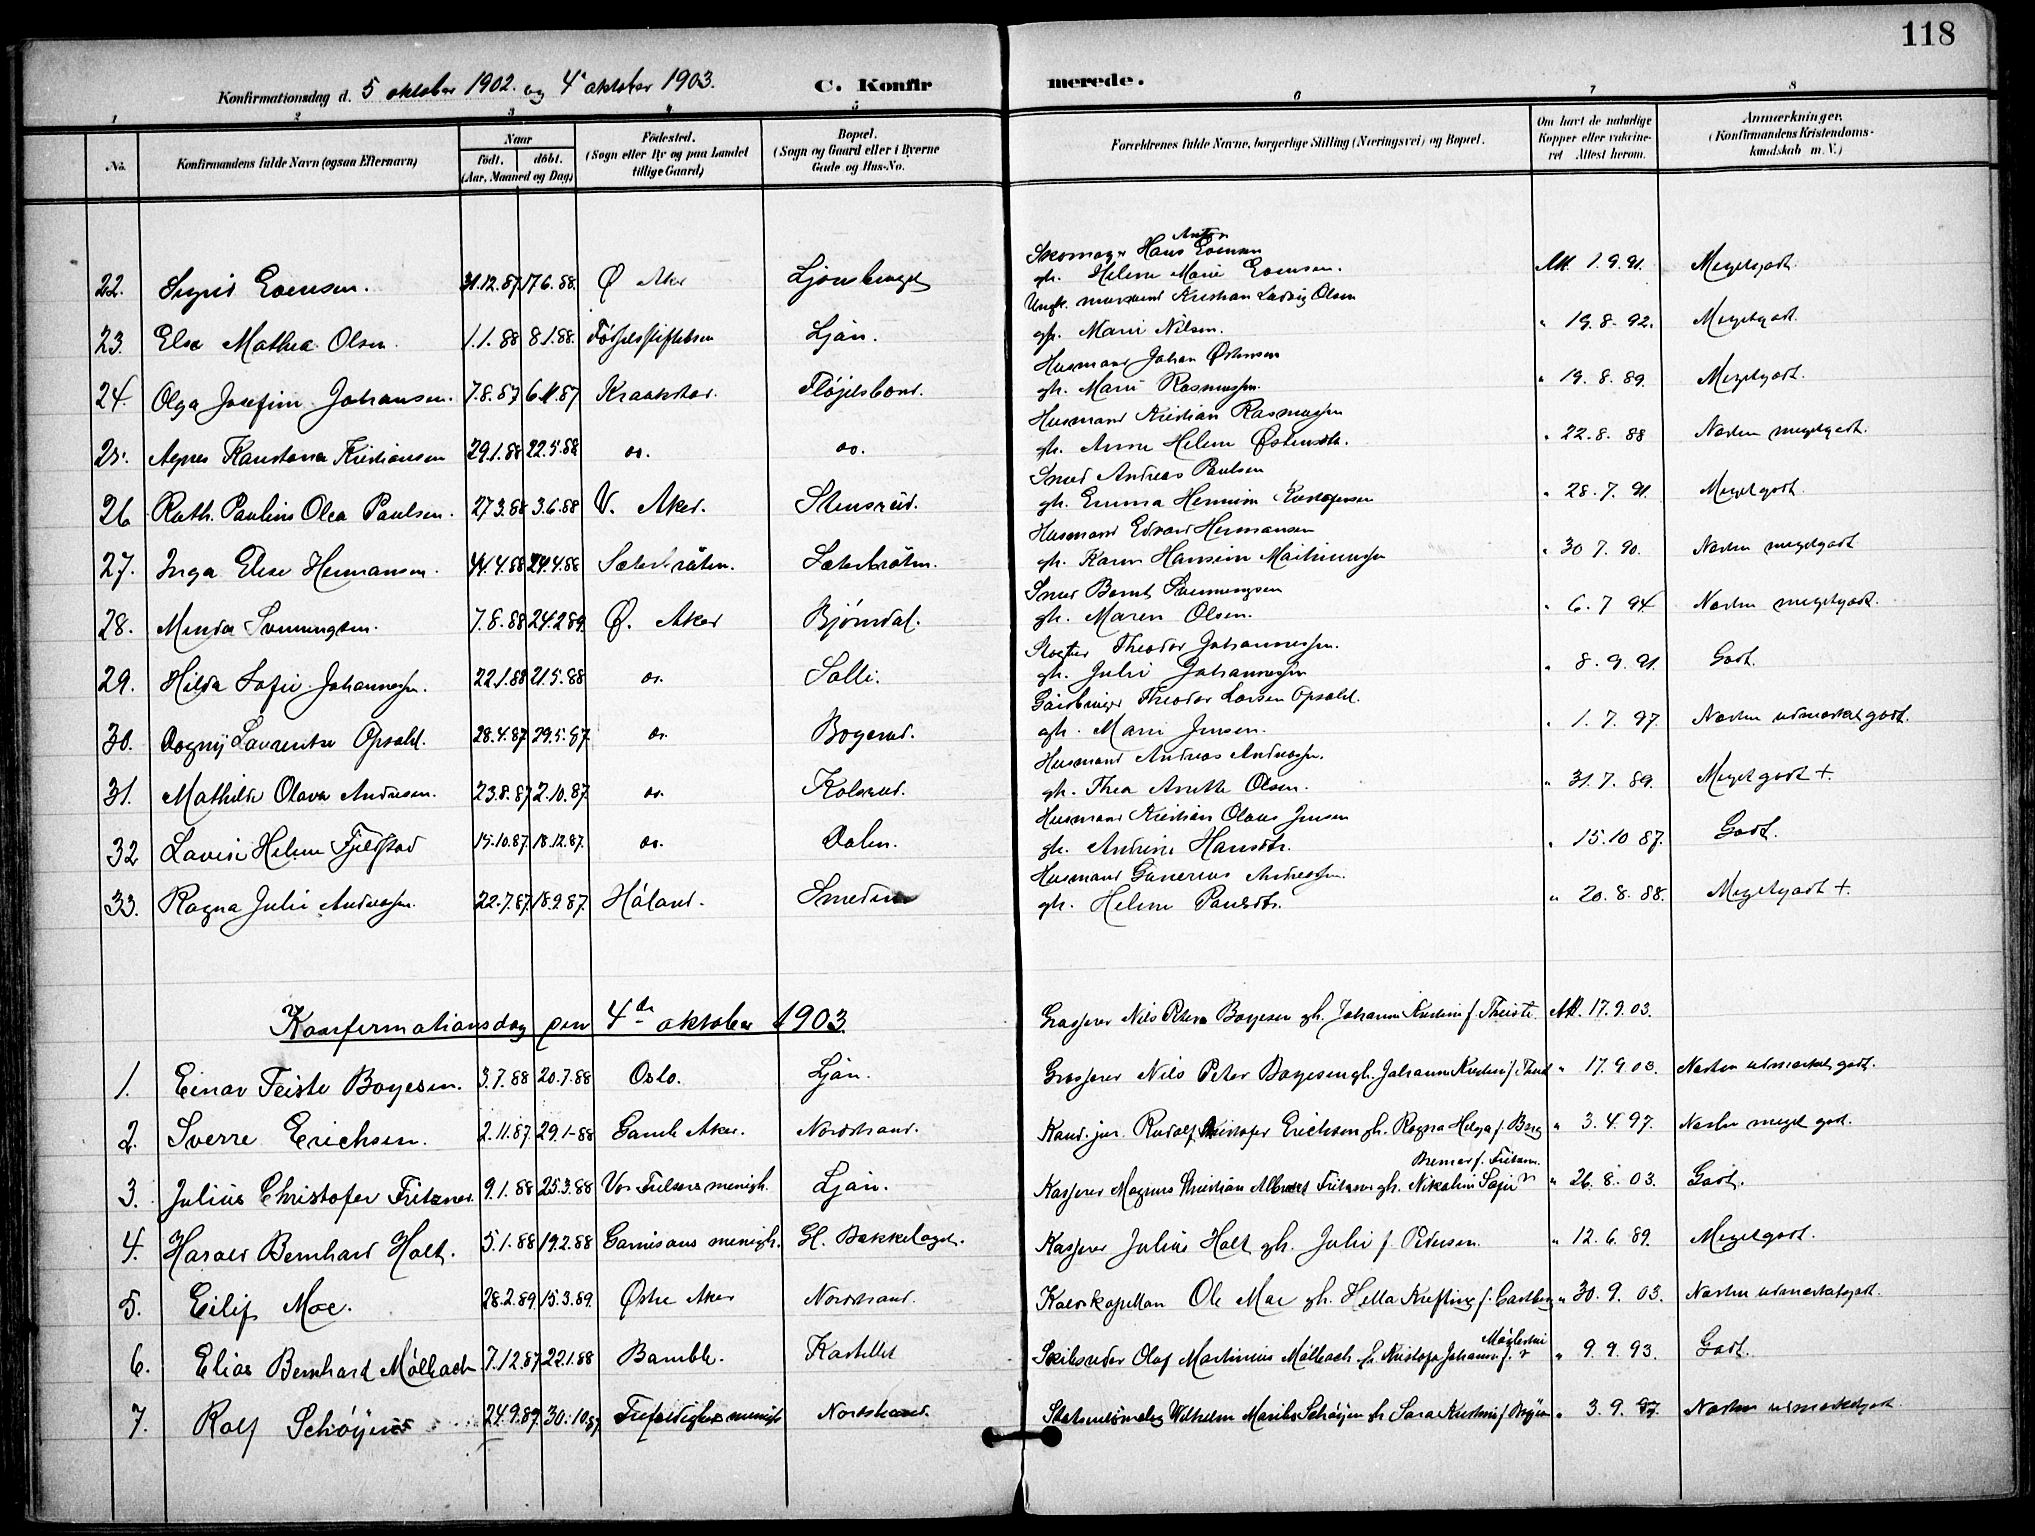 118
Konfirmationsdag d. 5 oktober 1902. og 4 oktober 1903. C. Konfirmerede.
1 2 3 4 5 6 7 8
No. Konfirmandens fulde Navn (ogsaa Efternavn) Naar födt. döbt. (Aar, Maaned og Dag) Födested. (Sogn eller By og paa Landet tillige Gaard) Bopæl. (Sogn og Gaard eller i Byerne Gade og Hus-No. Forældrenes fulde Navne, borgerlige Stilling (Næringsvei) og Bopæl. Om havt de naturlige Kopper eller vakcineret Attest herom. Anmærkninger. (Konfirmandens Kristendomskundskab m. V.)
Skomager Hans Anton Evensen
22. Sigrid Evensen. 31.12.87 17.6.88. Ø Aker Ljansbruget gh. Helene Marie Evensen. Att. 1.9.91. Megetgodt.
Ungk. Kristian Ludvig Olsen
23. Else Mathea Olsen. 1.1.88 8.1.88. Fødselsstiftelsen Ljan. gh. Marie Nilsen. " 19.8.92. Megetgodt.
Husmand Johan Østensen
24. Olga Josefine Johansen. 7.8.87 6.11.87 Kraakstad. Fløjelsbond. gh. Marie Rasmussen. " 19.8.89. Megetgodt.
Husmand Kristian Rasmussen
25. Agnes Konstanse Kristiansen 29.1.88 22.5.88 do. do. gh. Anne Helene Østensdtr. " 22.8.88 Næsten megetgodt.
Smed Andreas Paulsen
26 Rath. Pauline Olea Paulsen. 27.3.88 3.6.88 V. Aker. Stensrud. gh. Emma Hermine " 28.7.91. Megetgodt.
Husmand Edvard Hermansen
27. Inga Elise Hermansen. 24.4.88 Sæterbråten. Sæterbråten. gh. Karen Hansine Martinussen " 30.7.90. Næsten megetgodt
Smed Bernt Svenningsen
28. Minda Svenningsen. 7.8.88 24.2.89. Ø. Aker Bjørndal. gh. Maren Olsen. " 6.7.94 Næsten megetgodt.
Theodor Johannessen.
29. Hilda Sofie Johannessen. 22.1.88 21.5.88 do. Solli. gh. Julie Johannessen " 8.9.91. Godt.
Gårdbruger Theodor Larsen Opsahl.
30. Dagny Lavrentse Opsahl. 28.4.87 29.5.87. do. Bogerud. gh. Marie Jensen. " 1.7.97. Næsten udmerket godt.
Husmand Andreas Andreassen.
31. Mathilde Olava Andresen. 23.8.87 2.10.87. do. Kolsrud. gh. Thea Anette Olsen. " 31.7.89. Megetgodt +.
Husmand Kristian Olaus Jensen
32 Lovise Helene Fjelstad 15.10.87. 18.12.87. do. Dalen. gh. Andrine Hansdtr. " 15.10.87. Godt.
Husmand Gunerius Andreassen.
33. Ragna Julie Andreassen. 22.7.87 18.9.87. Høland. Smeden gh. Helene Paulsdtr. " 20.8.88. Megetgodt +.
Konfirmationsdag den 4de oktober 1903.
Grosserer Nils Peter Boyesen gh. Johanne Kristine f. Theiste Att. 17.9.03.
1. Einar Teiste Boyesen. 3.7.88 20.7.88 Oslo. Ljan. Grosserer Nils Peter Boyesen gh. Johanne Kristine f. " 17.9.03. Næsten udmerket godt.
2. Sverre Erichsen. 2.11.87. 29.1-88 Gamle Aker. Nordstrand. Kand. jur. Rudolf Kristofer Erichsen gh. Ragna Helga f. Berg " 3.4.97. Næsten meget godt.
3. Julius Christofer Fritzner. 9.1.88 25.3.88 Vor Frelsers menigh. Ljan. Kasserer Magnus Christian Albert Fritzner gh. Nikoline Sofie Bremer f. Fritzner. " 26.8.03. Godt.
4. Harald Bernhard Holt. 5.1.88 19.2.88 Garnisons menigh. Gl. Bekkelaget. Kasserer Julius Holt gh. Julie f. Pedersen " 12.6.89. Megetgodt.
5. Eilif Moe. 28.2.89. 15.3.89. Østre Aker Nordstrand. Kaldskapellan Ole Moe gh. Hella Krefting f. Castberg " 30.9.03. Næsten udmerketgodt.
6. Elias Bernhard Mølbach 7.12.87 22.1.88 Bamble. Kastellet Skibsreder Olaf Martinius Mølbach gh. Kristofa Johanne f. " 9.9.93. Godt.
7. Rolf Schøyen 24.9.87. 30.10.87 Trefoldigheds menigh Nordstrand. Wilhelm Schøyen gh Sara Kristine f. " 3.9. Næsten udmerketgodt